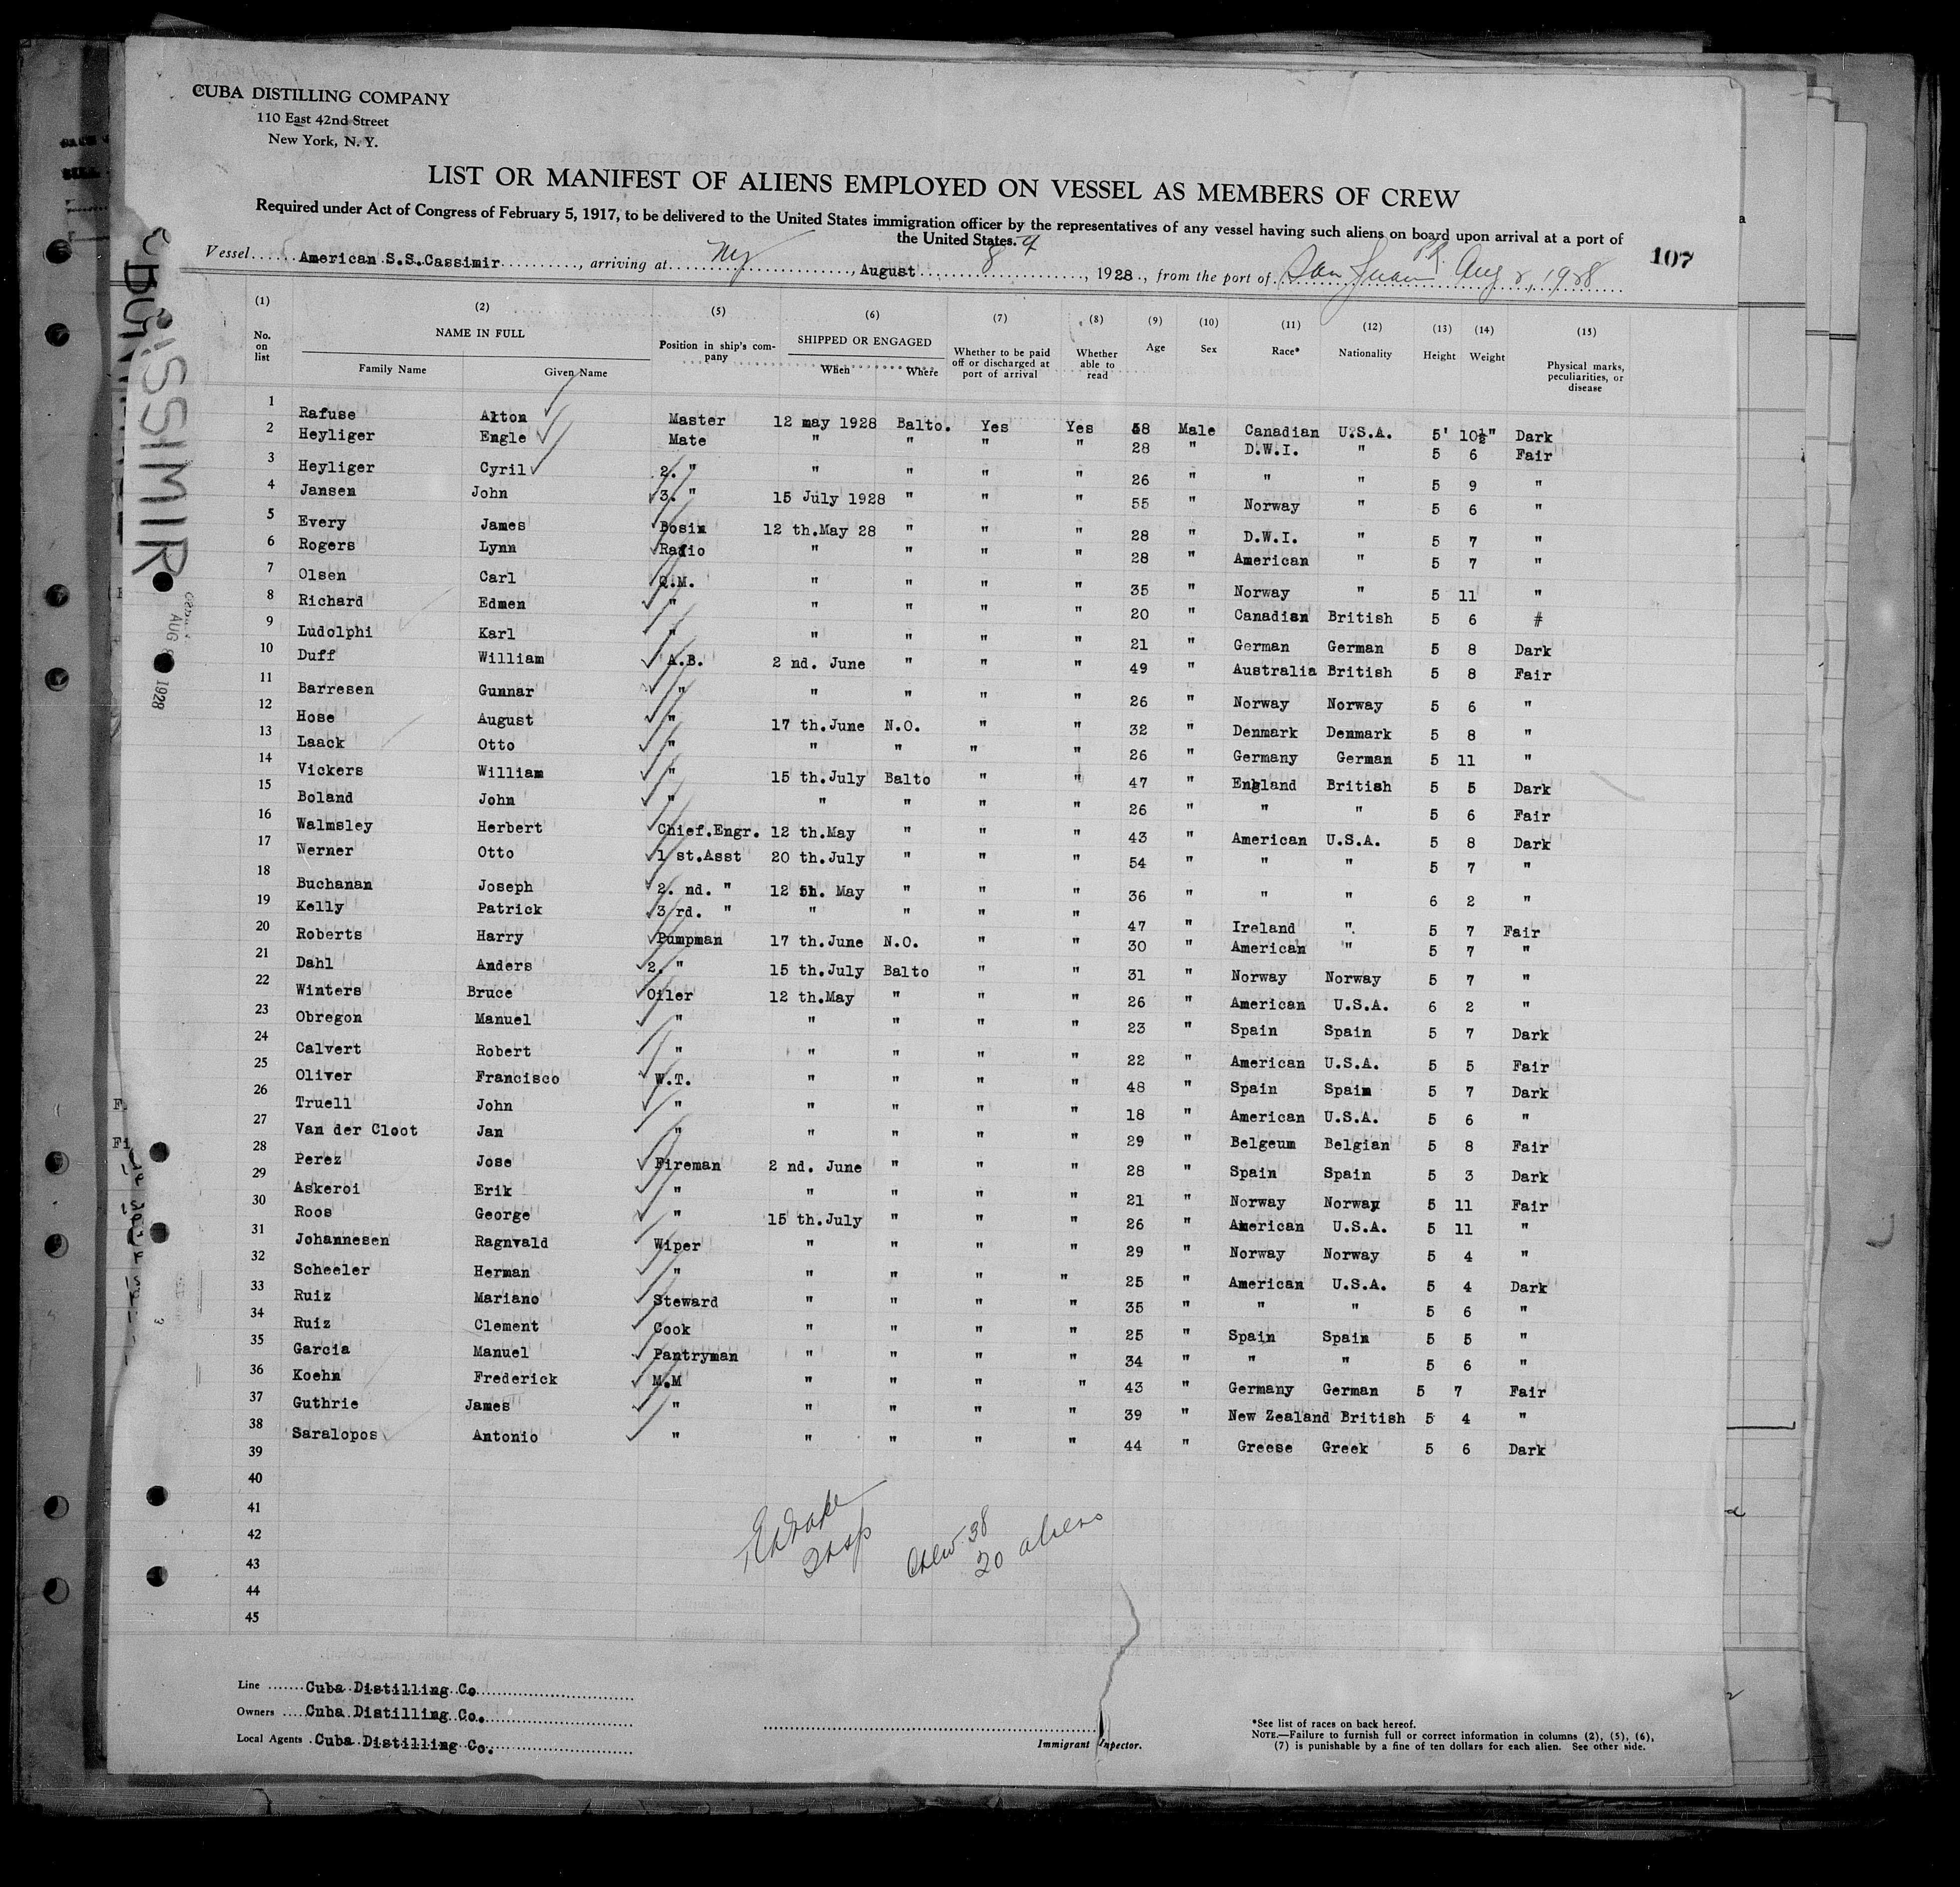 CUBA DISTILLING COMPANY
110 East 42nd Street
New York, N. Y.
LIST OR MANIFEST OF ALIENS EMPLOYED ON VESSEL AS MEMBERS OF CREW
Required under Act of Congress of February 5, 1917, to be delivered to the United States immigration officer by the representatives of any vessel having such aliens on board upon arrival at a port of
the United States.
107
Vessel American S.S.Cassimir, arriving at NY, August 8, 1928, from the port of San Juan P.R. Aug 2, 1928
(1) (2) (5) (6) (7) (8) (9) (10) (11) (12) (13) (14) (15)
No. on list NAME IN FULL Family Name Given Name Position in ship's company SHIPPED OR ENGAGED When Where Whether to be paid off or discharged at port of arrival Whether able to read Age Sex Race* Nationality Height Weight Physical marks, peculiarities, or disease
1 Rafuse Alton Master 12 may 1928 Balto. Yes Yes 48 Male Canadian U.S.A. 5' 10½" Dark
2 Heyliger Engle Mate " " " " 28 " D.W.I. " 5 6 Fair
3 Heyliger Cyril 2. " " " " " 26 " " " 5 9 "
4 Jansen John 3. " 15 July 1928 " " " 55 " Norway " 5 6 "
5 Every James Bosin 12 th.May 28 " " " 28 " D.W.I. " 5 7 "
6 Rogers Lynn Radio " " " " 28 " American " 5 7 "
7 Olsen Carl Q.M. " " " " 35 " Norway " 5 11 "
8 Richard Edmen " " " " " 20 " Canadian British 5 6 #
9 Ludolphi Karl " " " " " 21 " German German 5 8 Dark
10 Duff William A.B. 2 nd. June " " " 49 " Australia British 5 8 Fair
11 Barresen Gunnar " " " " " 26 " Norway Norway 5 6 "
12 Hose August " 17 th.June N.O. " " 32 " Denmark Denmark 5 8 "
13 Laack Otto " " " " " 26 " Germany German 5 11 "
14 Vickers William " 15 th.July Balto " " 47 " England British 5 5 Dark
15 Boland John " " " " " 26 " " " 5 6 Fair
16 Walmsley Herbert Chief.Engr. 12 th.May " " " 43 " American U.S.A. 5 8 Dark
17 Werner Otto 1 st.Asst 20 th.July " " " 54 " " " 5 7 "
18 Buchanan Joseph 2. nd. " 12 th. May " " " 36 " " " 6 2 "
19 Kelly Patrick 3 rd. " " " " " 47 " Ireland " 5 7 Fair
20 Roberts Harry Pumpman 17 th.June N.O. " " 30 " American " 5 7 "
21 Dahl Anders 2. " 15 th.July Balto " " 31 " Norway Norway 5 7 "
22 Winters Bruce Oiler 12 th.May " " " 26 " American U.S.A. 6 2 "
23 Obregon Manuel " " " " " 23 " Spain Spain 5 7 Dark
24 Calvert Robert " " " " " 22 " American U.S.A. 5 5 Fair
25 Oliver Francisco W.T. " " " " 48 " Spain Spain 5 7 Dark
26 Truell John " " " " " 18 " American U.S.A. 5 6 "
27 Van der Cloot Jan " " " " " 29 " Belgeum Belgian 5 8 Fair
28 Perez Jose Fireman 2 nd. June " " " 28 " Spain Spain 5 3 Dark
29 Askeroi Erik " " " " " 21 " Norway Norway 5 11 Fair
30 Roos George " 15 th.July " " " 26 " American U.S.A. 5 11 "
31 Johannesen Ragnvald Wiper " " " " 29 " Norway Norway 5 4 "
32 Scheeler Herman " " " " " 25 " American U.S.A. 5 4 Dark
33 Ruiz Mariano Steward " " " " 35 " " " 5 6 "
34 Ruiz Clement Cook " " " " 25 " Spain Spain 5 5 "
35 Garcia Manuel Pantryman " " " " 34 " " " 5 6 "
36 Koehn Frederick M.M " " " " 43 " Germany German 5 7 Fair
37 Guthrie James " " " " " 39 " New Zealand British 5 4 "
38 Saralopos Antonio " " " " " 44 " Greese Greek 5 6 Dark
39
40
41
42
43
44
45
Crew 38
20 aliens
Line Cuba Distilling Co
Owners Cuba Distilling Co.
Local Agents Cuba Distilling Co.
Immigrant Inspector.
*See list of races on back hereof.
NOTE.—Failure to furnish full or correct information in columns (2), (5), (6),
(7) is punishable by a fine of ten dollars for each alien. See other side.
AUG 8 1928